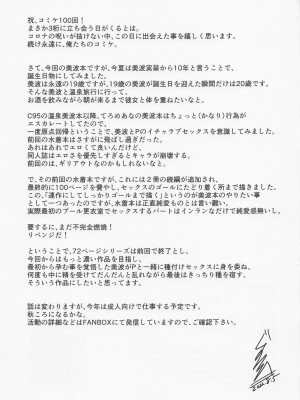 祝、コミケ100回！
まさか3桁に立ち会う日がくるとは。
コロナの呪いが抜けない中、この日に出会えた事を嬉しく思います。
続け永遠に、俺たちのコミケ。
さて、今回の美波本ですが、今夏は美波実装から10年と言うことで、
誕生日物にしてみました。
美波は永遠の19歳ですが、19歳の美波が誕生日を迎えた瞬間だけは20歳です。
そんな美波と温泉旅行に行って、
お酒を飲みながら朝が来るまで彼女と体を重ねたいなと。
C95の温泉美波本以降、てろめあなの美波本はちょっと(かなり)行為が
エスカレートしてたので、
一度原点回帰ということで、美波とPのイチャラブセックスを意識してみました。
前回の水着本はさすがに飛ばし過ぎだった。
あれはあれでエロくて良いんだけど、
同人誌はエロさを優先しすぎるとキャラが崩壊する。
前回のは、ギリアウトなのかもしれないなと。
で、その前回の水着本ですが、これには2冊の続編が追加され、
最終的に100ページを費やし、セックスのゴールにたどり着く所まで描きました。
この、「連作にしてしっかりゴールまで描く」というのが美波本のやりたい事
として一つあったのですが、水着本は正直純愛ものとは言い難い。
実際最初のプール更衣室でセックスするパートはインランなだけで純愛感無いし。
要するに、まだ不完全燃焼！
リベンジだ！
ということで、72ページシリーズは前回で終了とし、
今回からはもっと濃い作品を目指し、
最初から孕む事を覚悟した美波がPと一緒に種付けセックスに身を委ね、
何度も中に精を受けてだんだんと乱れながら最後はきっちり種を宿す、
そういう作品にしたいと思ってます。
話は変わりますが、今年は成人向けで仕事する予定です。
秋ころになるかな。
活動の詳細などはFANBOXにて発信していますので、ご確認下さい。